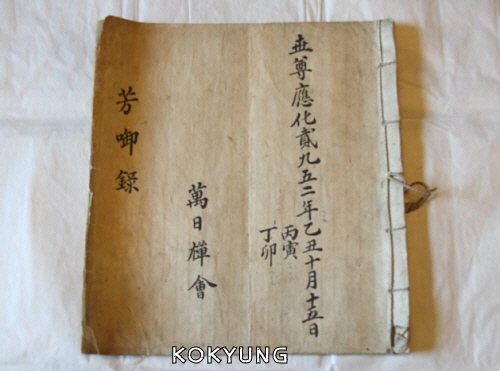 世尊應化貳九五二年乙丑十月十五日
丙寅
丁卯
萬日禪會
芳啣錄
KOKYUNG